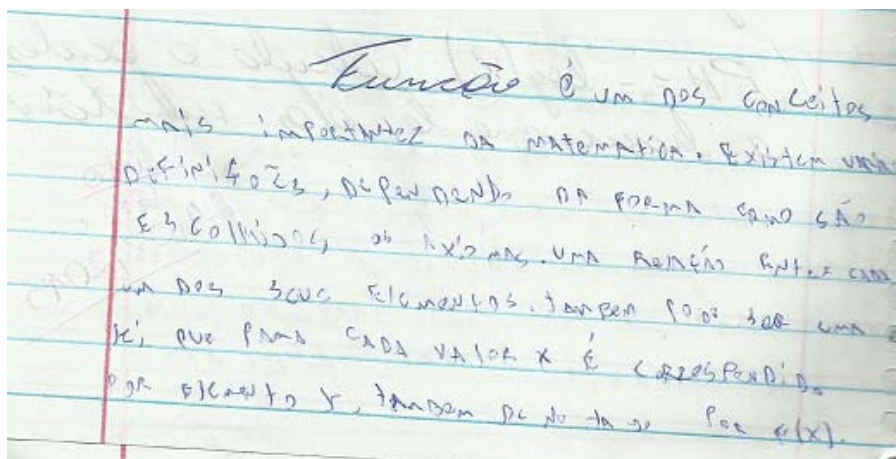 Função é um dos conceitos
mais importantez da matematica. Existem varia
definições, dependendo da forma como são
escolhidos, os axiomas. uma relação entre cada
um dos seus elementos. tambem pode ser uma
lei, que para cada valor x é correspondido
por elemento y, tambem denotado por f(x).